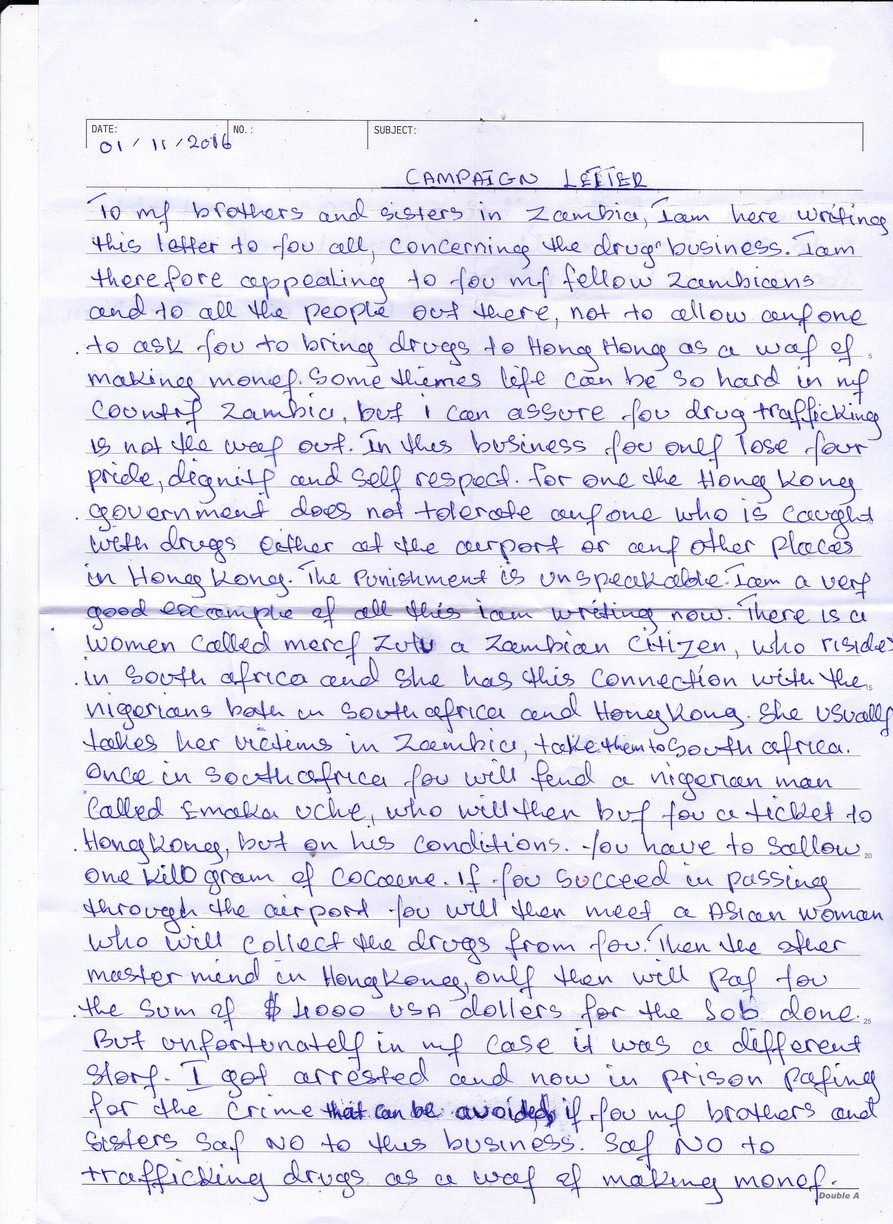 DATE: NO.: SUBJECT:
01/11/2016
CAMPAIGN LETTER
To my brothers and sisters in Zambia, Iam here writing
this letter to you all, concerning the drugs business. Iam
therefore appealing to you my fellow Zambians
and to all the people out there, not to allow anyone
to ask you to bring drugs to Hong Hong as a way of
making money. Some themes life can be so hard in my
Country Zambia, but i can assure you drug trafficking
is not the way out. In this business you only lose your
pride, dignity and self respect. For one the Hong Kong
government does not tolerate anyone who is caught
with drugs either at the airport or any other places
in Hong Kong. The Punishment is unspeakable. Iam a very
good excample of all this iam writing now. There is a
women called mercy Zulu a Zambian Citizen, who risides
in South africa and she has this connection with the
nigerians both in South africa and HongKong. She usually
takes her victims in Zambia, take them to South africa.
Once in South africa you will fend a nigerian man
called Emaka uche, who will then buy you a ticket to
HongKong, but on his conditions. You have to sallow
One killo gram of cocaene. If you succeed in passing
through the airport you will then meet a Asian woman
who will collect the drugs from you. Then the other
master mind in HongKong, only then will pay you
the sum of $4000 USA dollers for the Job done.
But unfortunately in my case it was a different
story. I got arrested and now in prison paying
for the crime that can be avoided, if you my brothers and
sisters say NO to this business. Say NO to
trafficking drugs as a way of making money.
5
15
20
25
Double A